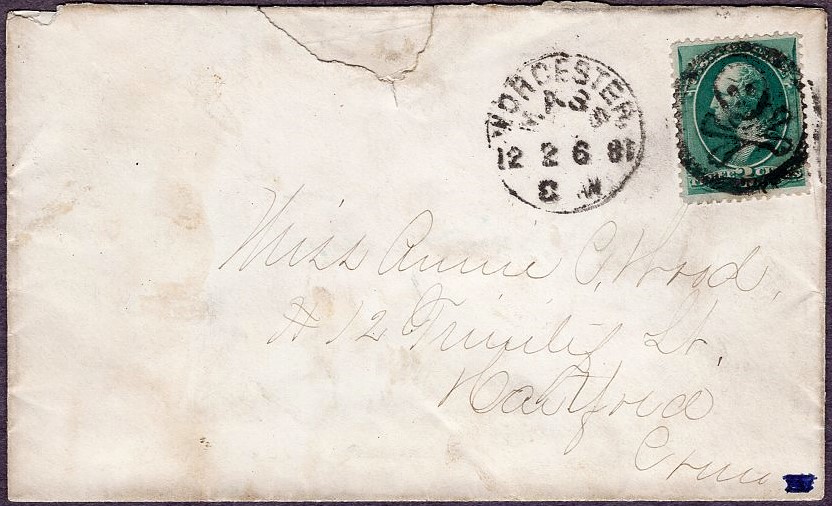 WORCESTER
MASS
12 26 81
8
Miss Annie C. Wood,
# 12 Trinity St.
Hartford
Conn
THREE 3 CENTS